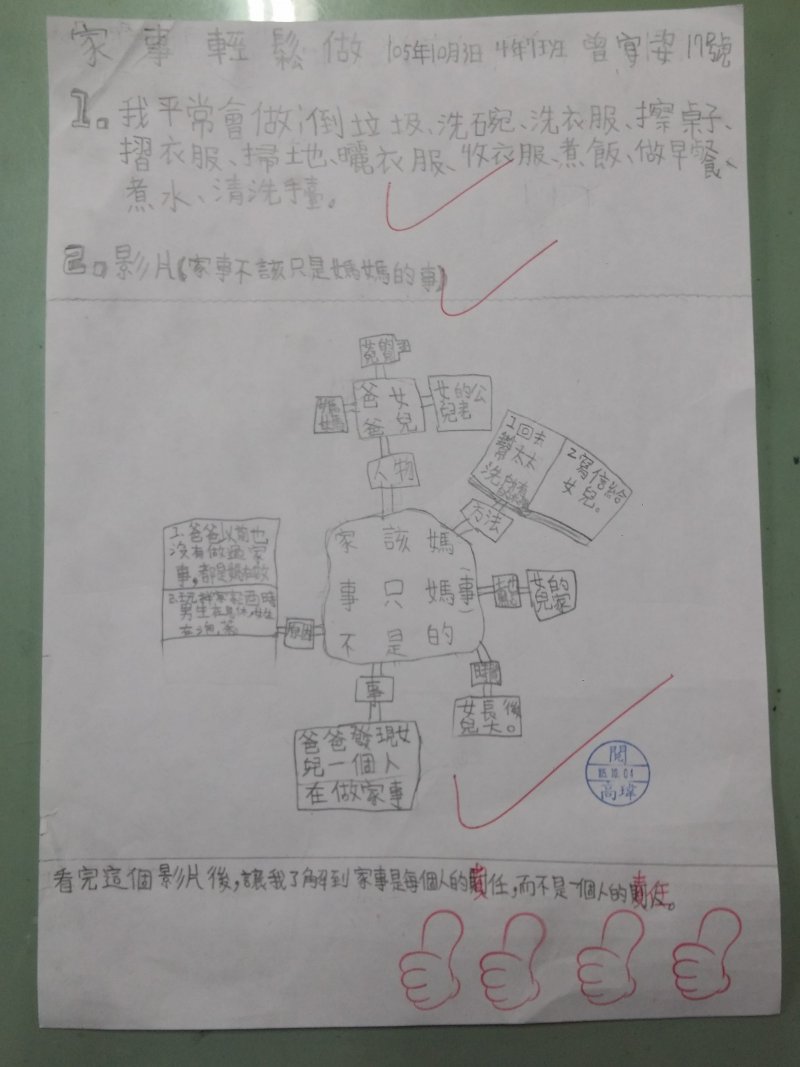 家事輕鬆做 105年10月3日 4年班 曾宜姿 17號
1. 我平常會做:倒垃圾、洗碗、洗衣服、擦桌子、
摺衣服、掃地、曬衣服、收衣服、煮飯、做早餐、
煮水、清洗手臺。
2. 影片(家事不該只是媽媽的事)
爸爸
女兒
女兒的公
媽媽
人物
1.回去
幫太太
洗
2.寫信給
女兒。
方法
家事不
該只是
媽媽的
(事)
女兒的家
1. 爸爸以前也
沒有做過家
事,都是媽媽做
男生在
原因
時間
女兒長大後。
事
爸爸發現女
兒一個人
在做家事
閱
105.10.04
高瑋
看完這個影片後,讓我了解到家事是每個人的責任,而不是一個人的責任。